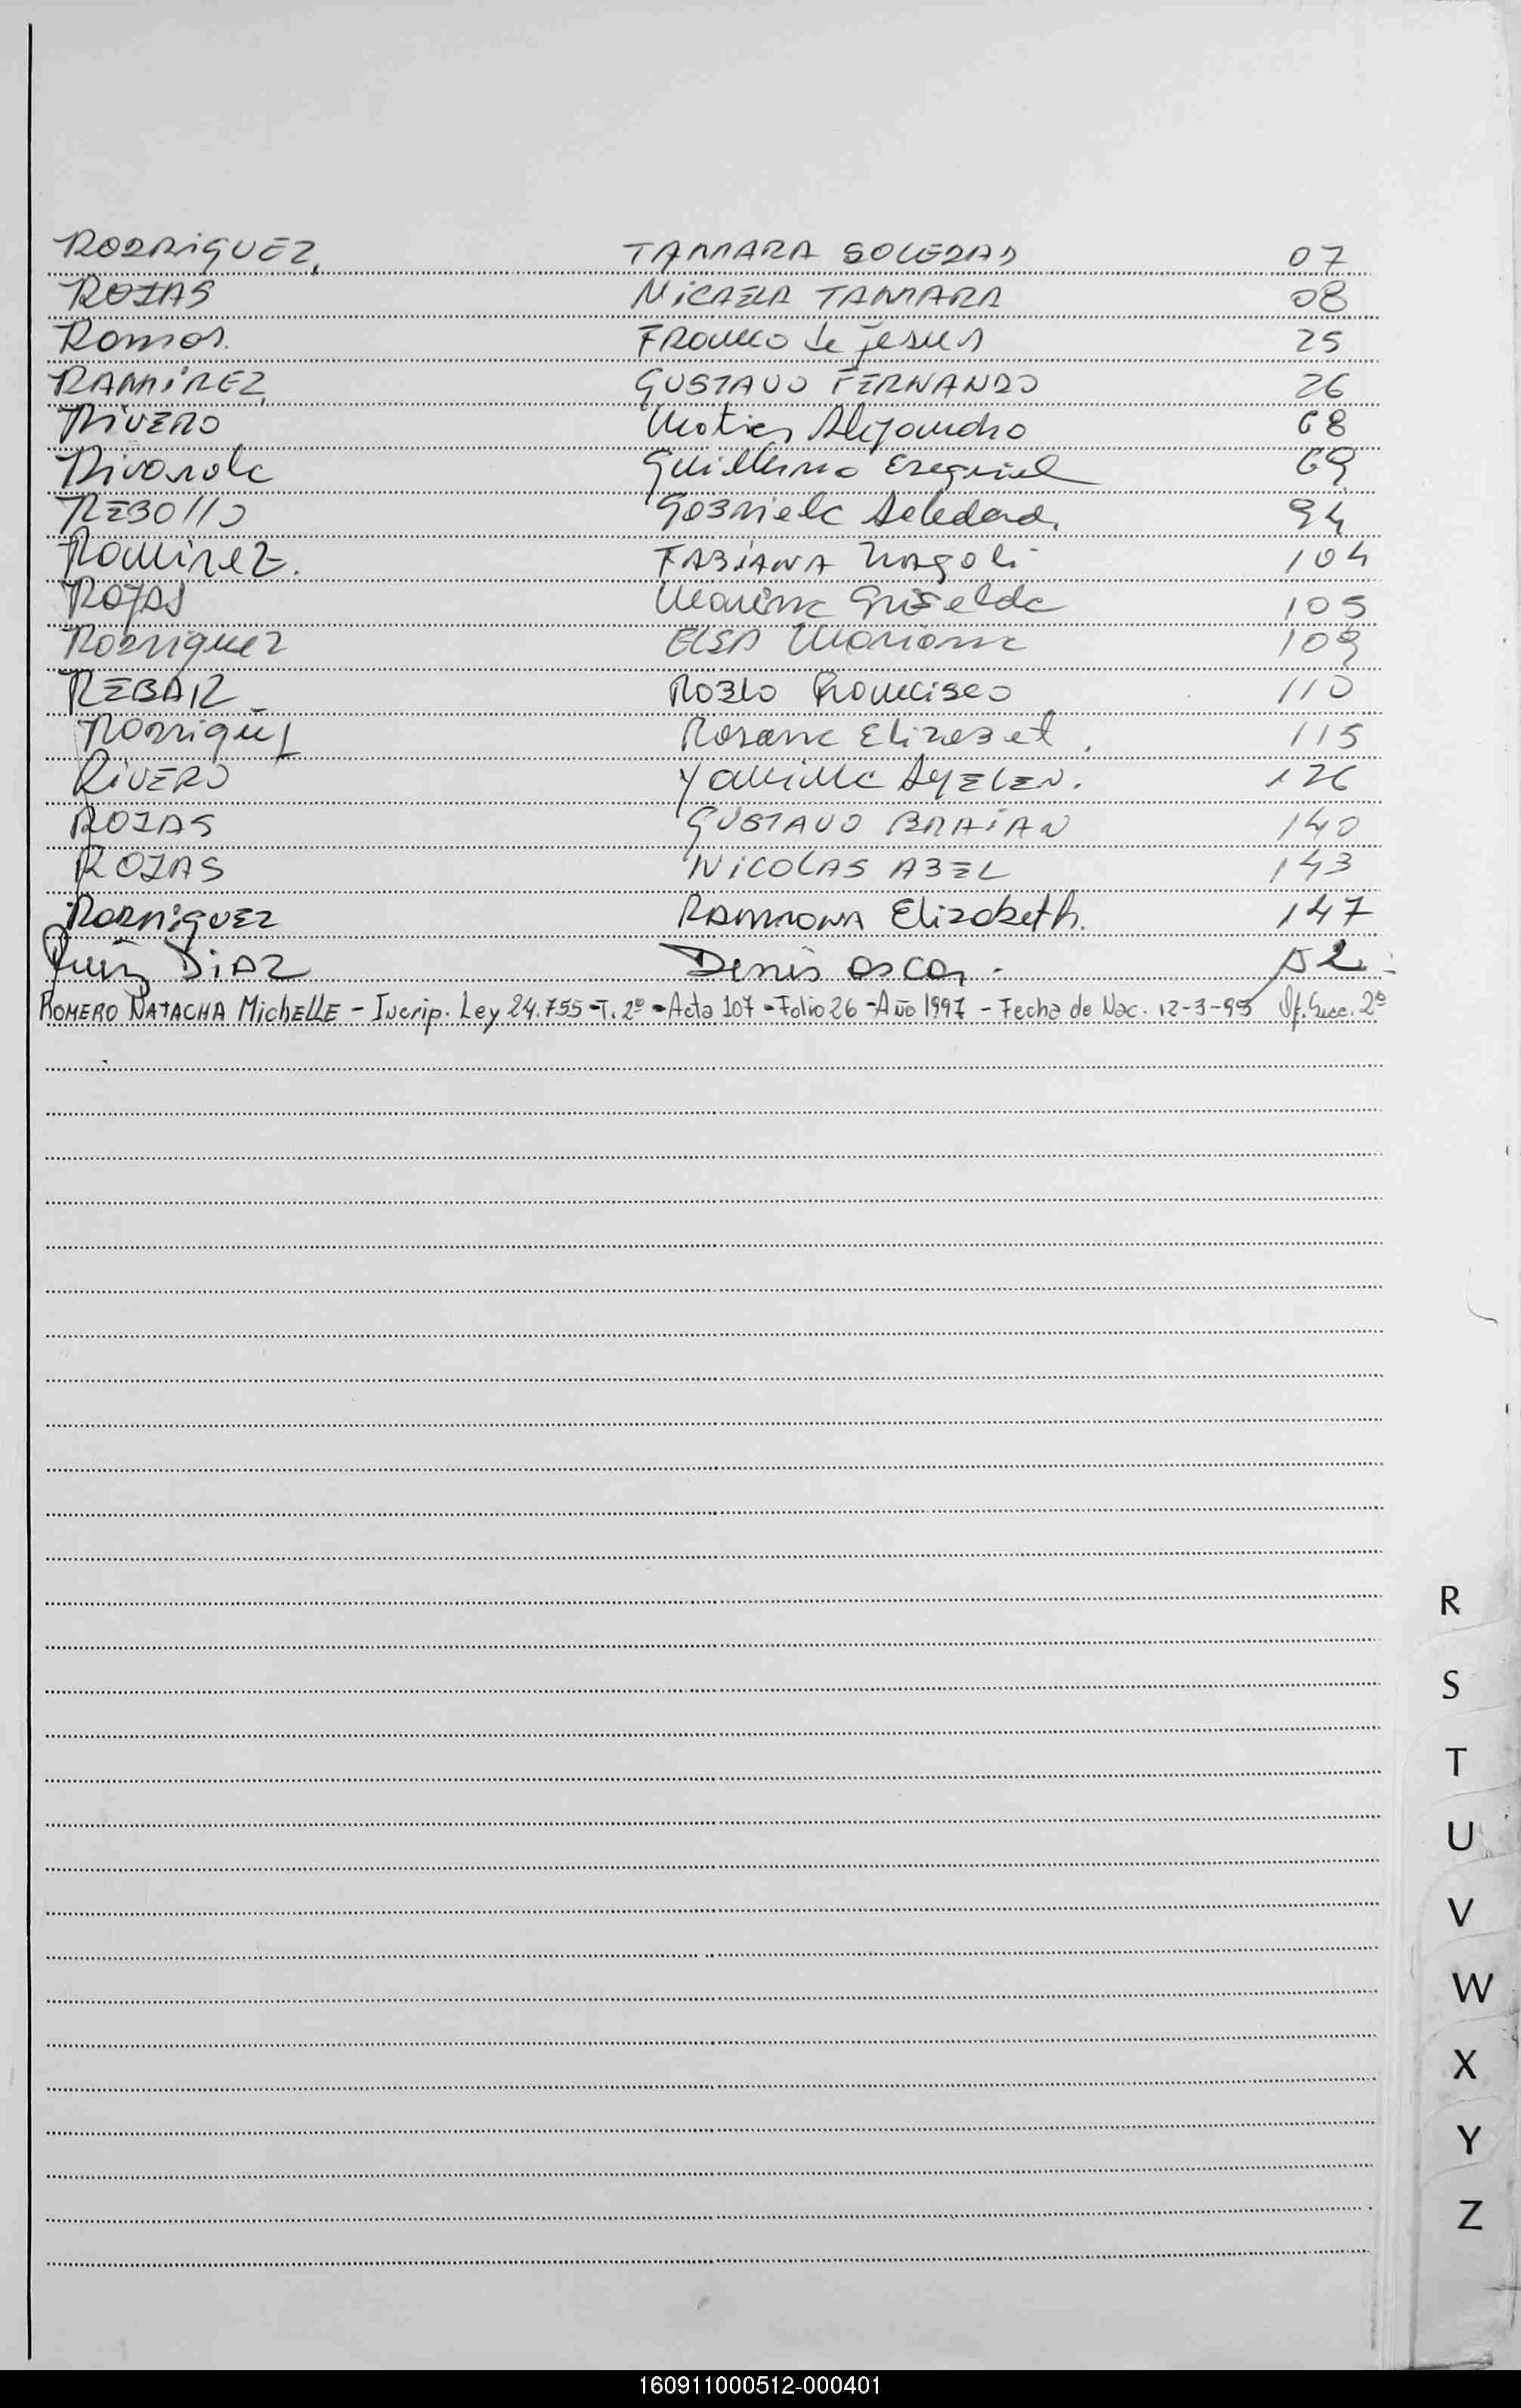 RODRIGUEZ, TAMARA SOLEDAD 07
ROJAS MICAELA TAMARA 08
Ramos. Franco de Jesus 25
RAMIREZ GUSTAVO FERNANDO 26
RIVERO Matias Alejandro 68
Rivarola Guillermo Ezequiel 69
REBOLLO Gabriela Soledad. 94
Ramirez. FABIANA 104
ROJAS Griselda 105
Rodriguez ELSA Mariana 109
REBAR Pablo Francisco 110
Rodriguez Rosana Elizabet. 115
RIVERO Yamila AYELEN. 126
ROJAS GUSTAVO BRAIAN 140
ROJAS NICOLAS ABEL 143
RODRIGUEZ RAMMONA Elizabeth. 147
Ruiz DIAZ Denis Oscar.
ROMERO NATACHA MichELLE - Inscrip. Ley 24.755 - T. 2º - Acta 107 - Folio 26 - Año 1997 - Fecha de Nac. 12-3-95 Of. Secc. 2ª
R
S
T
U
V
W
X
Y
Z
160911000512-000401